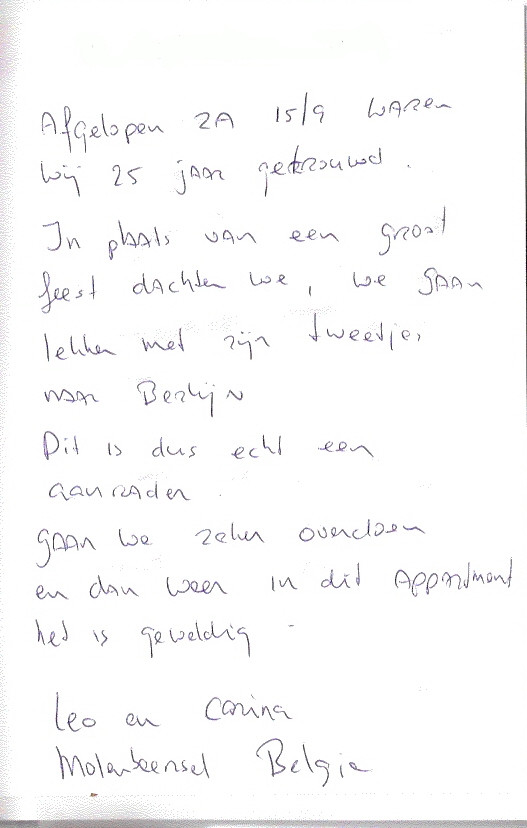 Afgelopen ZA 15/9 waren
wij 25 jaar getrouwd.
In plaats van een groot
feest dachten we, we gaan
lekker met zijn tweetjes
naar Berlijn
Dit is dus echt een
aanrader.
gaan we zeker overdoen
en dan weer in dit Appartment
het is geweldig
Leo en Carina
Molenbeersel Belgie